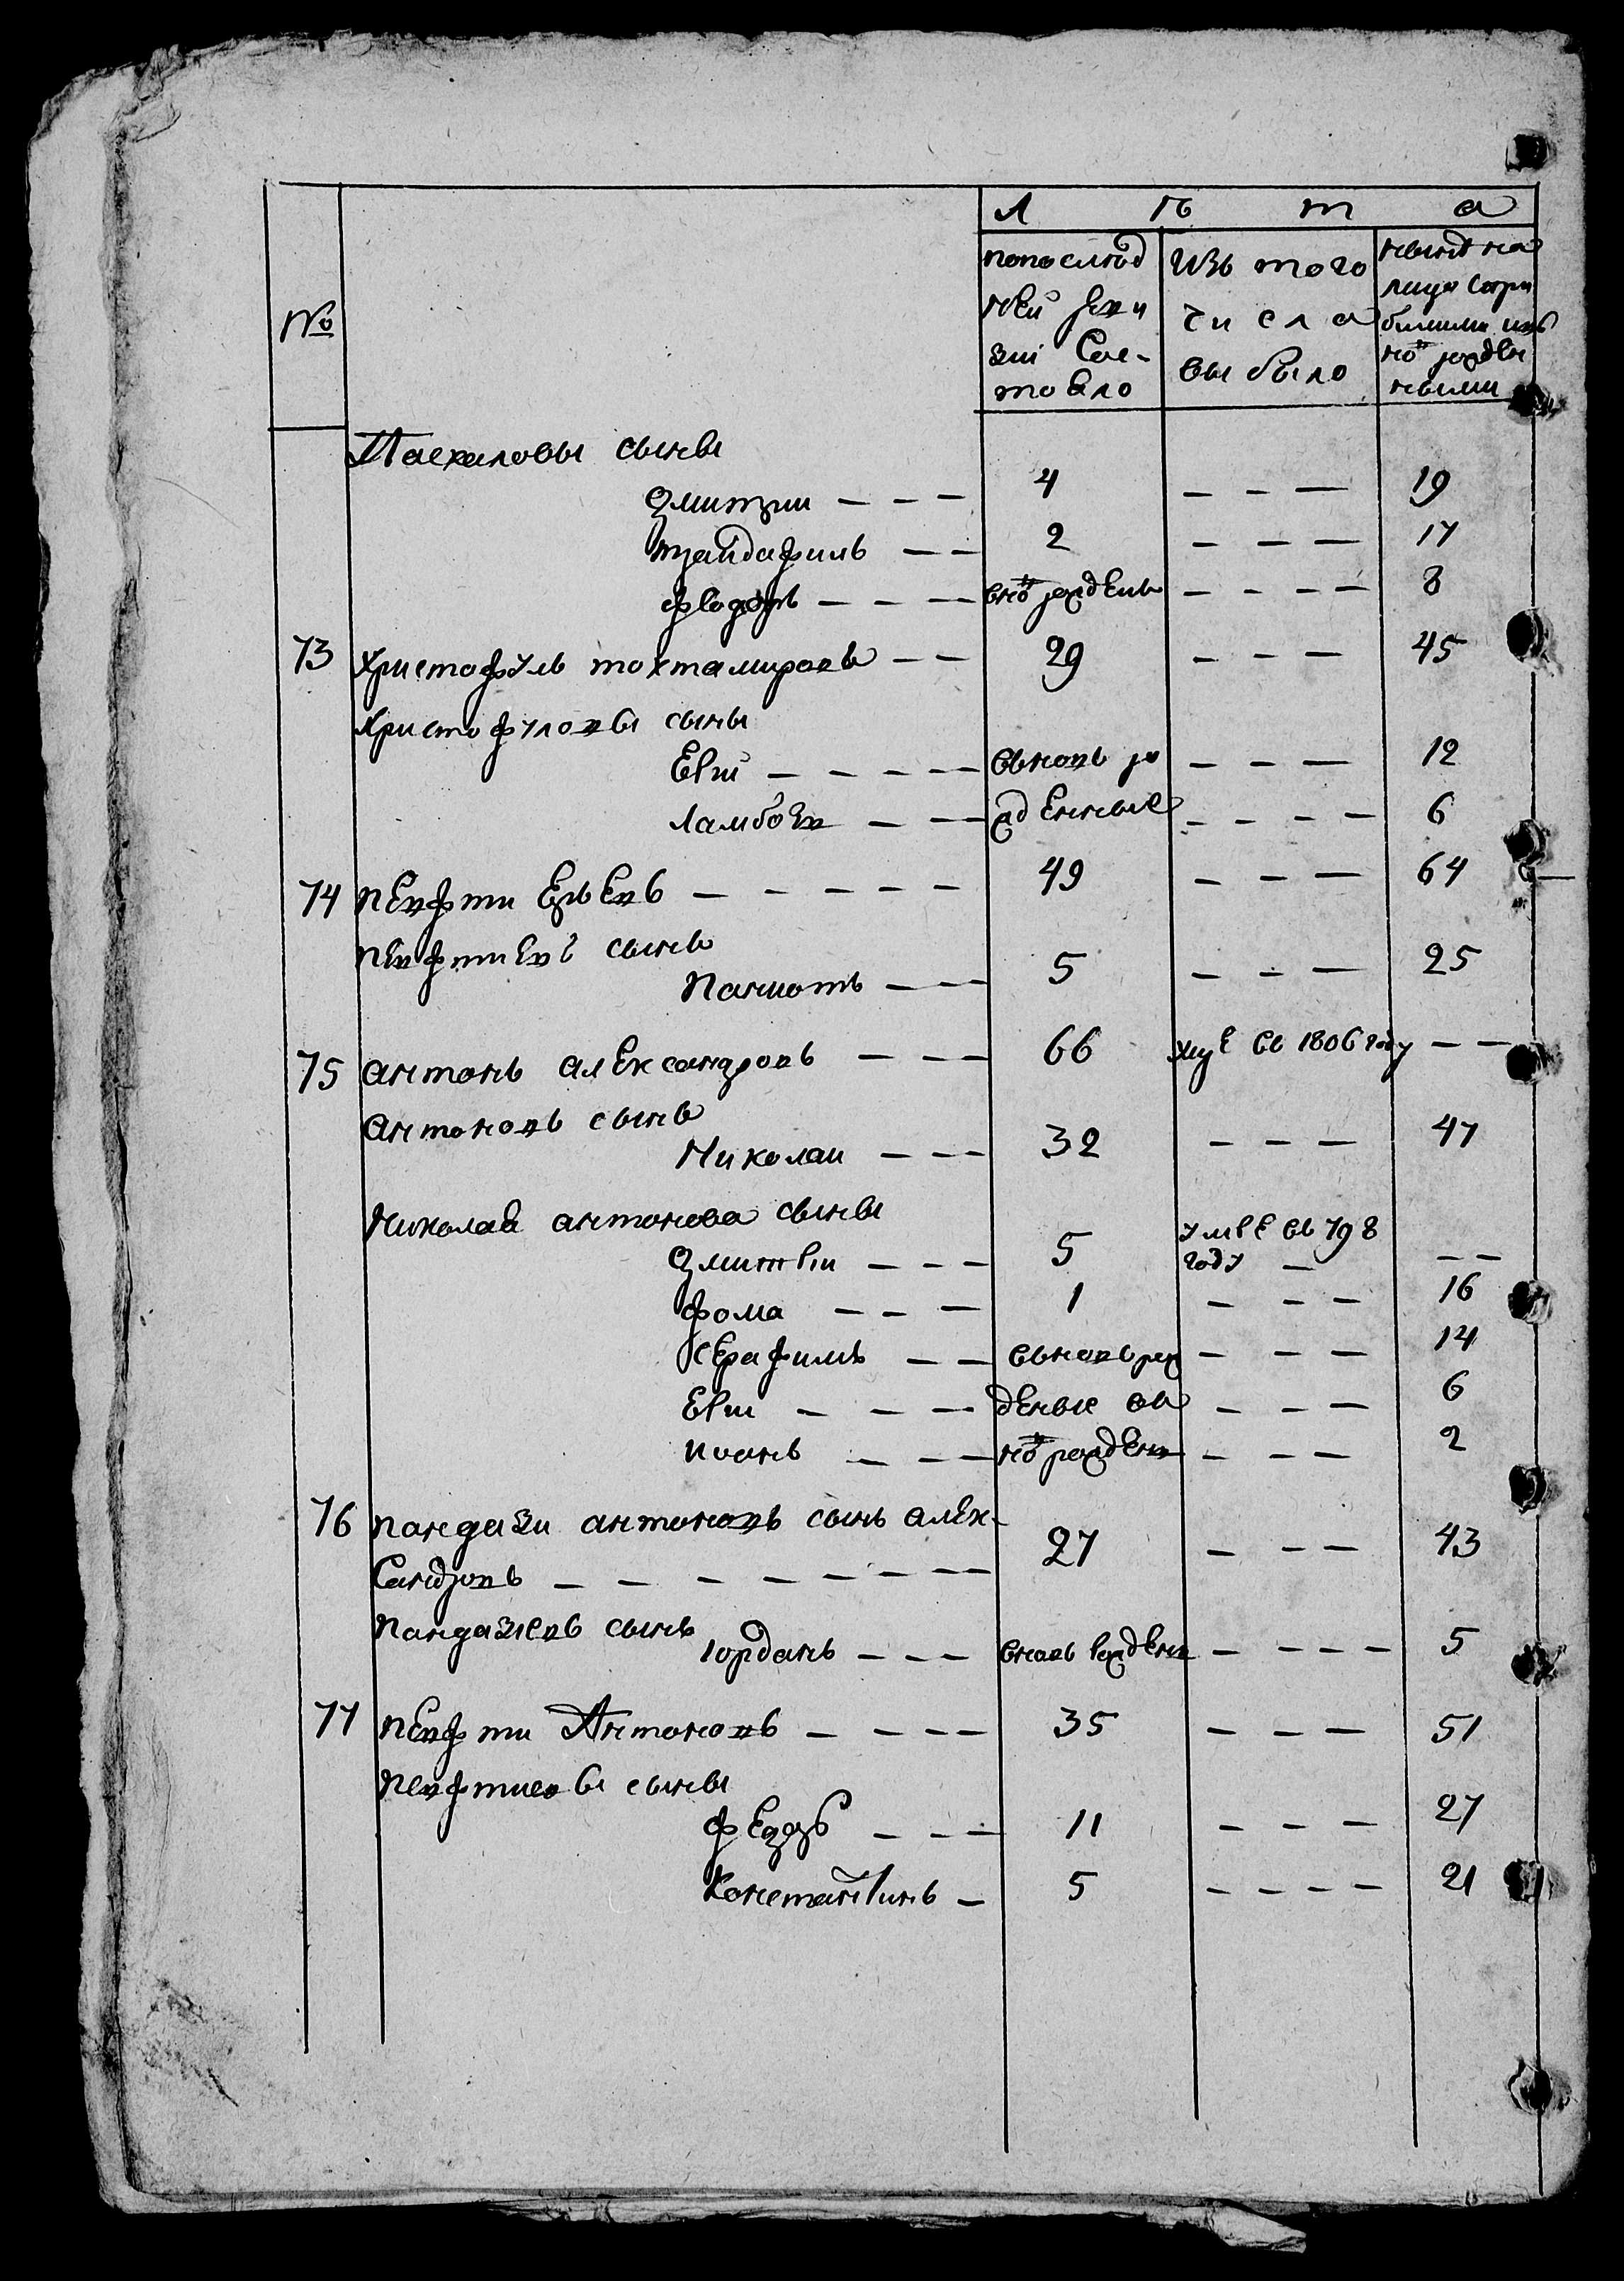 Л ѣ т а
№
по послѣд
ней реви
зіи Сос-
тояло
изъ того
числа
выбыло
нынѣ на
лицо съ при
былыми и въ
новъ рожден
ными
Пасхаловы сыны
Дмитрий — — — 4 — — — 19
трандафиль — — 2 — — — 17
федоръ — — — вновъ рожденъ — — — — 8
73 Христофуль тохтамировъ — — 29 — — — 45
Христофуловы сыны
Ерій — — — — — вьновь ро — — — 12
Ламбовъ — — — жденные — — — — 6
74 Пефти — — — — — 49 — — — 64
Пефтиевъ сынъ
Паниотъ — — — 5 — — — 25
75 Антонъ Александровъ — — — 66 въ 1806 году — —
Антоновъ сынъ
Николаи — — — 32 — — — 47
Николая антонова сыны
Дмитріи — — — 5 умре въ 798
году — — —
фома — — — 1 — — — 16
Серафимъ — — вьновь рож — — — 14
Ери — — — деные вь — — — 6
Иоанъ — — — новъ рожден — — — 2
76 Пандази антоновъ сынъ Алек-
Сандровъ — — — — — — — — 27 — — — 43
Пандазиевъ сынъ
Іорданъ — — — вновь рожден — — — — 5
77 Певфти Антоновъ — — — — 35 — — — 51
Певфтиевы сыны
федоръ — — — 11 — — — 27
Константинъ — 5 — — — — 21